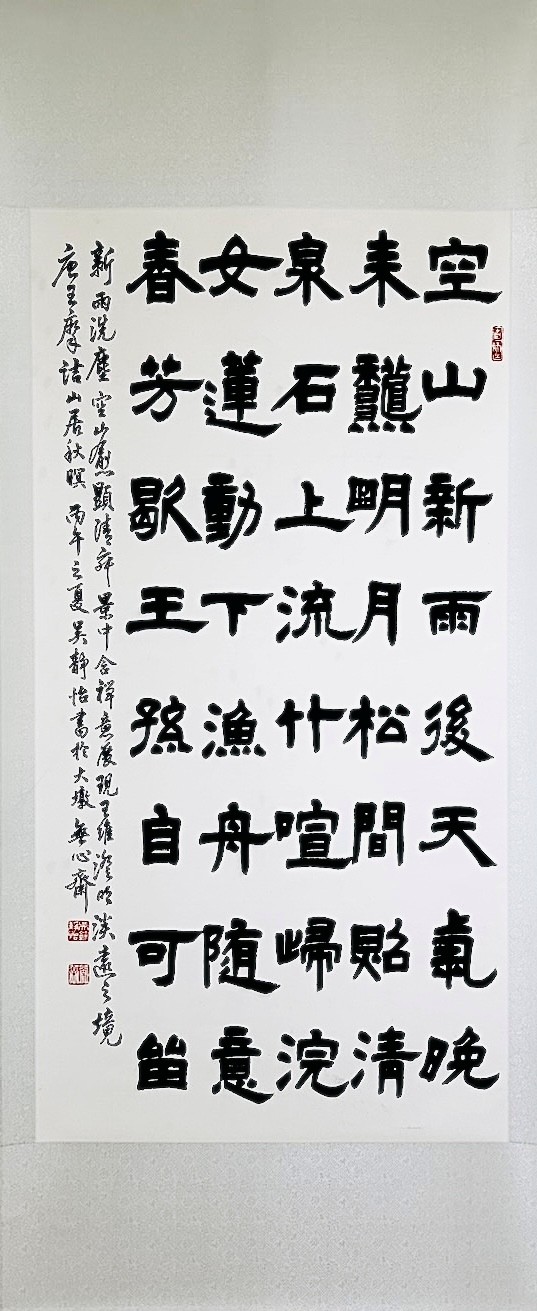 空山新雨後天氣晚
来龝明月松間照清
泉石上流竹喧歸浣
女蓮動下漁舟随意
春芳歇王孫自可留
新雨洗塵空山愈顯清寂景中含禪意展現王維澄明淡遠之境
唐王摩詰山居秋暝 丙午之夏吳靜怡書於大墩無心齋